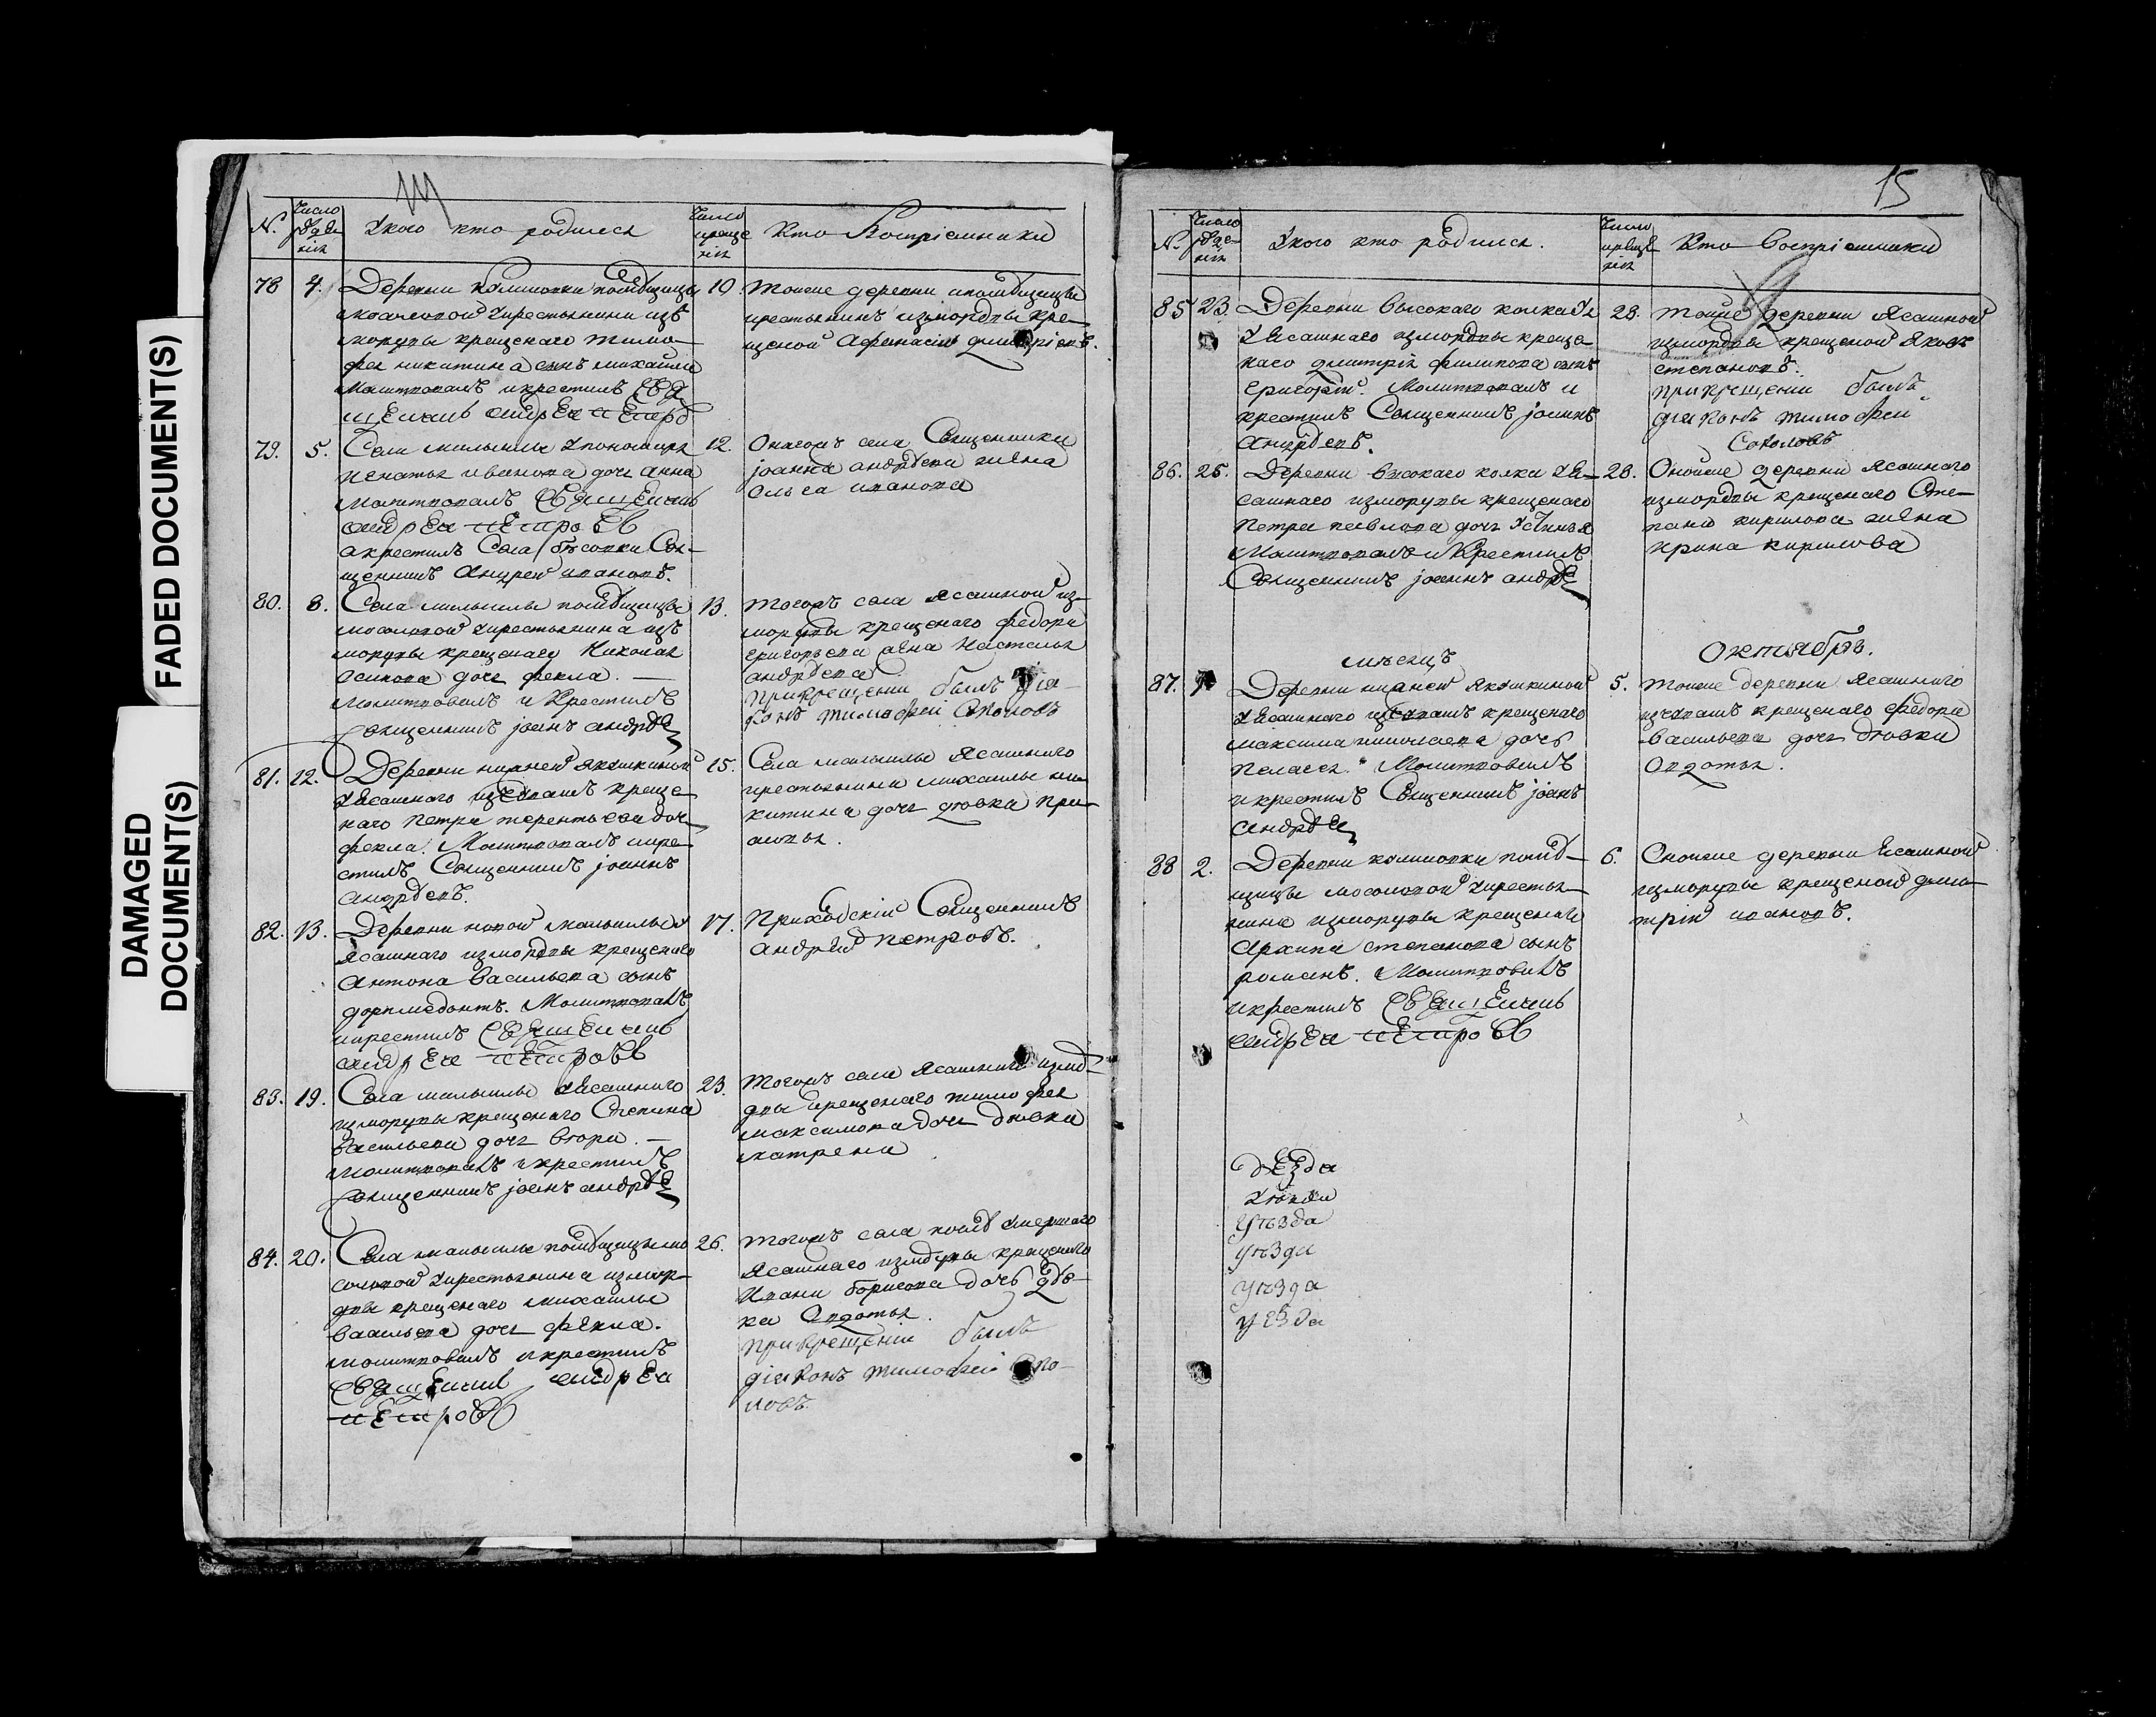 FADED DOCUMENT(S)
DAMAGED
DOCUMENT(S)
№.
Число
рожде
нія
Укого кто родился
Число
креще
нія
Кто Воспріемники
78 4.
Деревни помѣщицы
мосоловой Укрестьянина изъ
мордвы крещенаго тимо-
фея никитина сынъ михаилъ
Молитвовалъ икрестилъ свя
щенникъ андрей петро
10.
тойже деревни помѣщицы
крестьянинъ измордвы кре-
щеной Афанасій дмитріевъ.
79. 5.
Села Упономаря
игнатья иванова дочь анна
молитвовалъ священникъ
андрей петровъ
акрестилъ Села бѣсовки Свя-
щенникъ Андрей ивановъ.
12.
Онагожъ села Священника
іоанна андрѣева жена
Ольга иванова
80. 8.
Села помѣщицы
мосоловой Укрестьянина изъ
мордвы крещенаго Николая
осипова дочь фекла. —
молитвовалъ и Крестилъ
священникъ іоанъ андрѣе
13.
тогожъ села Ясашной из-
мордвы крещенаго федора
григорьева жена Настасья
андрѣева
прикрещеніи былъ діа-
конъ тимофей Соколовъ
81. 12.
Деревни нижней якушкиной
Уясашнаго изчувашъ креще-
наго петра терентьева доч
фекла. Молитвовалъ икре-
стилъ Священникъ іоаннъ
андрѣевъ.
15.
Села Ясашнаго
крестьянина михаилы ни-
китина дочь дѣвка
82. 13.
Деревни новой У
Ясашнаго измордвы крещенаго
антона Васильева сынъ
дормедонтъ. Молитвовалъ
икрестилъ священникъ
андрей петровъ
17.
Приходскій Священникъ
андрей петровъ.
83. 19.
Села Уясашнаго
измордвы крещенаго Степана
Васильева дочь —
молитвовалъ икрестилъ
священникъ іоанъ андрѣе
23.
тогожъ села Ясашнаго измо
двы крещенаго тимофея
максимова дочь дѣвка
матрена
84. 20.
Села помѣщицы мо
соловой Укрестьянина измор-
двы крещенаго михаилы
Васильева дочь фекла.
молитвовалъ икрестилъ
священникъ андрей
петровъ
26.
тогожъ села умершаго
Ясашнаго измордвы крещенаго
Ивана борисова дочь дѣв-
ка Авдотья.
прикрещеніи былъ
діаконъ тимофей Соко-
ловъ.
15
№.
Число
рожде-
нія
Укого кто родился.
Число
креще
нія
Кто Воспріемники
85 23.
Деревни высокаго колка
Уясашнаго измордвы креще-
наго дмитрія филипова сынъ
григорій. Молитвовалъ и
крестилъ Священникъ іоаннъ
андрѣевъ.
28.
тойже деревни Ясашной
измордвы крещеной Яковъ
степановъ.
прикрещеніи былъ
діаконъ тимофей
Соколовъ
86. 25.
Деревни высокаго колка Уя-
сашнаго измордвы крещенаго
петра павлова дочь Устинья
Молитвовалъ и Крестилъ
Священникъ іоаннъ андрѣе
28.
Оной же деревни Ясашнаго
измордвы крещенаго Сте-
пана кирилова жена
ирина кирилова
мѣсяцъ
Октябрь.
87. 1
Деревни нижней якушкиной
Уясашнаго изчувашъ крещенаго
максима николаева дочь
пелагея. Молитвовалъ
икрестилъ Священникъ іоанъ
андрѣе
5.
тойже деревни Ясашнаго
изчувашъ крещенаго федора
васильева дочь дѣвка
Авдотья.
88 2.
Деревни помѣ-
щицы мосоловой Укрестья-
нина измордвы крещенаго
архипа степанова сынъ
романъ. Молитвовалъ
икрестилъ священникъ
андрей петровъ
6.
Оной же деревни Ясашной
измордвы крещеной дми-
трій ивановъ.
уѣзда
уѣзда
уѣзда
уѣзда
уезда